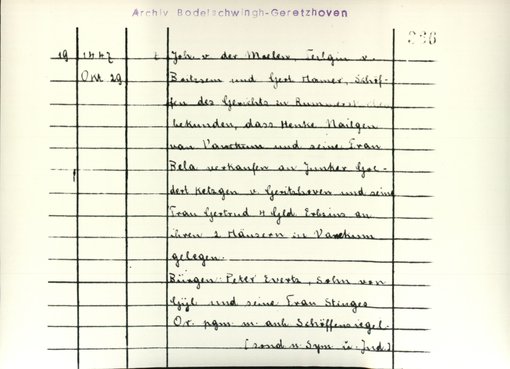 Archiv Bodelschwingh-Geretzhoven
236
19 1447 t Joh. v. der Maelen, Teilgin v.
Okt 29 und Gerd Hamer, Schöf-
fen des Gerichts in
bekunden, dass Henke Nailgen
van Vanckum und seine Frau
Bela verkaufen an Junker Goe-
dert Ketzgen v. Geritzhoven und seine
Frau Gertrud 4 Geld Erbzins an
ihren 2 Häusern in Vanckum
gelegen.
Bürgen: Peter Evertz, Sohn von
und seine Frau Stinges
Or. pgm. m. anh. Schöffensiegel.
(rond n. Sym. u. Jud.)